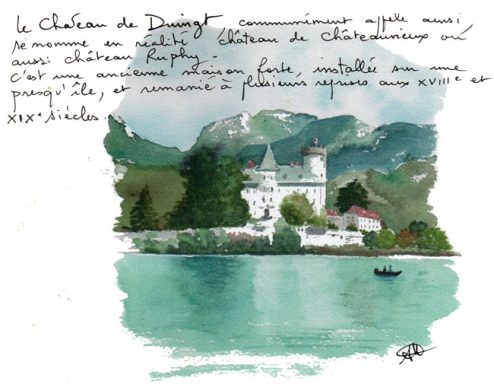 Le Château de Duingt, communément appelé ainsi,
se nomme en réalité château de Châteauvieux ou
aussi château Ruphy.
C'est une ancienne maison forte, installée sur une
presqu'île, et remanié à plusieurs reprises aux XVIIIe et
XIXe siècles.